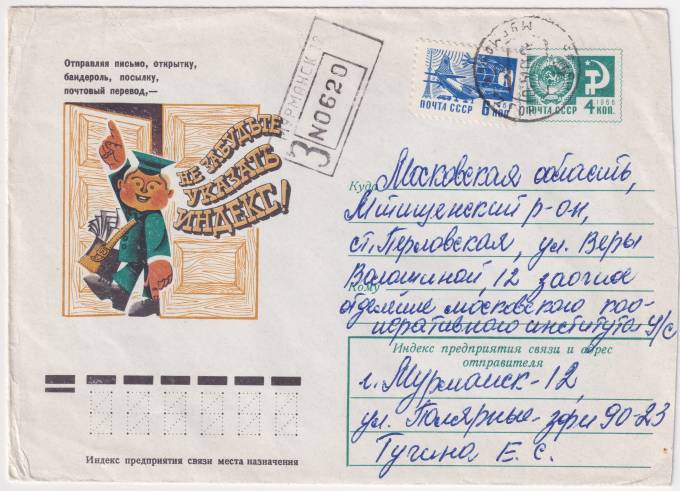 Отправляя письмо, открытку,
бандероль, посылку,
почтовый перевод,—
НЕ ЗАБУДЬТЕ
УКАЗАТЬ
ИНДЕКС!
МУРМАНСК 12
З №0620
ПОЧТА СССР 6 КОП
1966
ПОЧТА СССР 4 КОП.
Куда Московская область,
Мтищенский р-он,
ст. Перловская, ул. Веры
Волошиной, 12 заочное
Кому
отделение московского коо-
перативного института У/с
Индекс предприятия связи и адрес
отправителя
г. Мурманск-12,
ул. Полярные-зори 90-23
Тугина Е. С.
Индекс предприятия связи места назначения